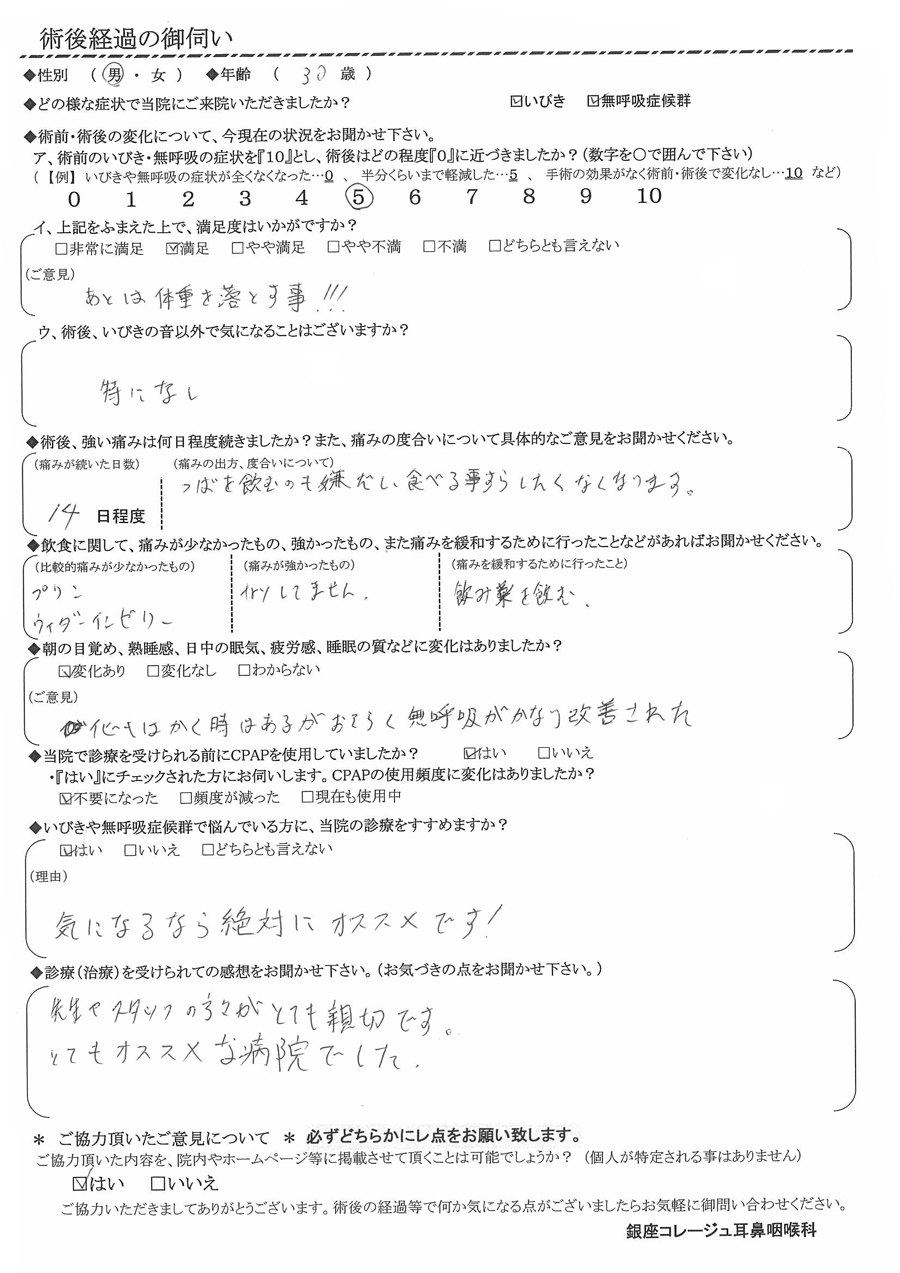 術後経過の御伺い
◆性別 (男・女) ◆年齢 (30歳)
◆どの様な症状で当院にご来院いただきましたか? ☑いびき ☑無呼吸症候群
◆術前・術後の変化について、今現在の状況をお聞かせ下さい。
ア、術前のいびき・無呼吸の症状を『10』とし、術後はどの程度『0』に近づきましたか?(数字を○で囲んで下さい)
(【例】いびきや無呼吸の症状が全くなくなった…0 、 半分くらいまで軽減した…5 、 手術の効果がなく術前・術後で変化なし…10 など)
0 1 2 3 4 5 6 7 8 9 10
イ、上記をふまえた上で、満足度はいかがですか?
□非常に満足 ☑満足 □やや満足 □やや不満 □不満 □どちらとも言えない
(ご意見)
あとは体重を落とす事!!!
ウ、術後、いびきの音以外で気になることはございますか?
特になし
◆術後、強い痛みは何日程度続きましたか?また、痛みの度合いについて具体的なご意見をお聞かせください。
(痛みが続いた日数) (痛みの出方、度合いについて)
つばを飲むのも嫌だし食べる事すらしたくなくなります。
14 日程度
◆飲食に関して、痛みが少なかったもの、強かったもの、また痛みを緩和するために行ったことなどがあればお聞かせください。
(比較的痛みが少なかったもの) (痛みが強かったもの) (痛みを緩和するために行ったこと)
プリン してません. 飲み薬を飲む.
ウィダーインゼリー
◆朝の目覚め、熟睡感、日中の眠気、疲労感、睡眠の質などに変化はありましたか?
☑変化あり □変化なし □わからない
(ご意見)
時はあるがおそらく無呼吸がかなり改善された
◆当院で診療を受けられる前にCPAPを使用していましたか? ☑はい □いいえ
・『はい』にチェックされた方にお伺いします。CPAPの使用頻度に変化はありましたか?
☑不要になった □頻度が減った □現在も使用中
◆いびきや無呼吸症候群で悩んでいる方に、当院の診療をすすめますか?
☑はい □いいえ □どちらとも言えない
(理由)
気になるなら絶対にオススメです!
◆診療(治療)を受けられての感想をお聞かせ下さい。(お気づきの点をお聞かせ下さい。)
先生やスタッフの方々がとても親切です。
とてもオススメな病院でした.
＊ ご協力頂いたご意見について ＊ 必ずどちらかにレ点をお願い致します。
ご協力頂いた内容を、院内やホームページ等に掲載させて頂くことは可能でしょうか? (個人が特定される事はありません)
☑はい □いいえ
ご協力いただきましてありがとうございます。術後の経過等で何か気になる点がございましたらお気軽に御問い合わせください。
銀座コレージュ耳鼻咽喉科